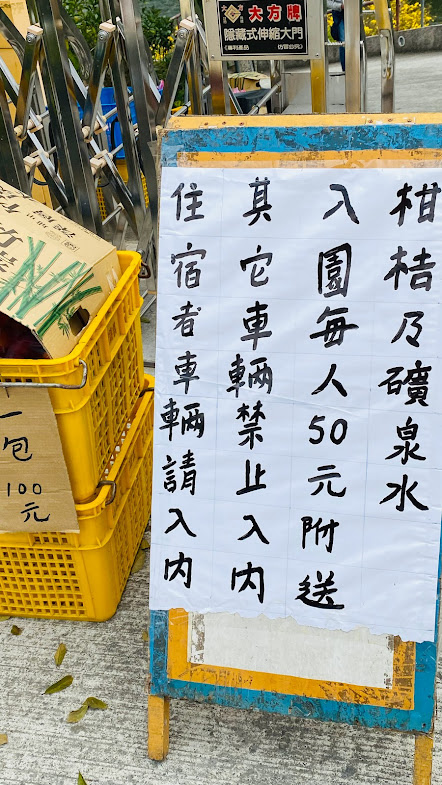 大方牌
隱藏式伸縮大門
《專利產品 仿冒必究》
住宿者車輛請入內
其它車輛禁止入內
入園每人50元附送
柑桔及礦泉水
一包
100
元